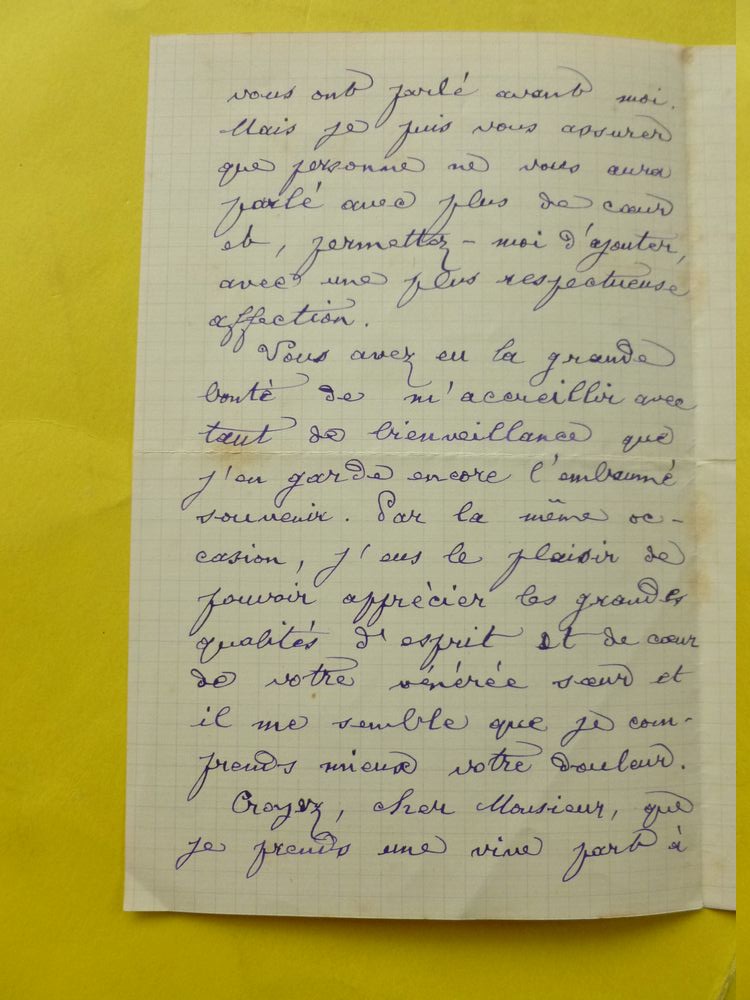 vous ont parlé avant moi.
Mais je puis vous assurer
que personne ne vous aura
parlé avec plus de cœur
et, permettez-moi d'ajouter,
avec une plus respectueuse
affection.
Vous avez eu la grande
bonté de m'accueillir avec
tant de bienveillance que
j'en garde encore l'embaumé
souvenir. Par la même oc-
casion, j'eus le plaisir de
pouvoir apprécier les grandes
qualités d'esprit et de cœur
de votre vénérée sœur et
il me semble que je com-
prends mieux votre douleur.
Croyez, cher Monsieur, que
je prends une vive part à